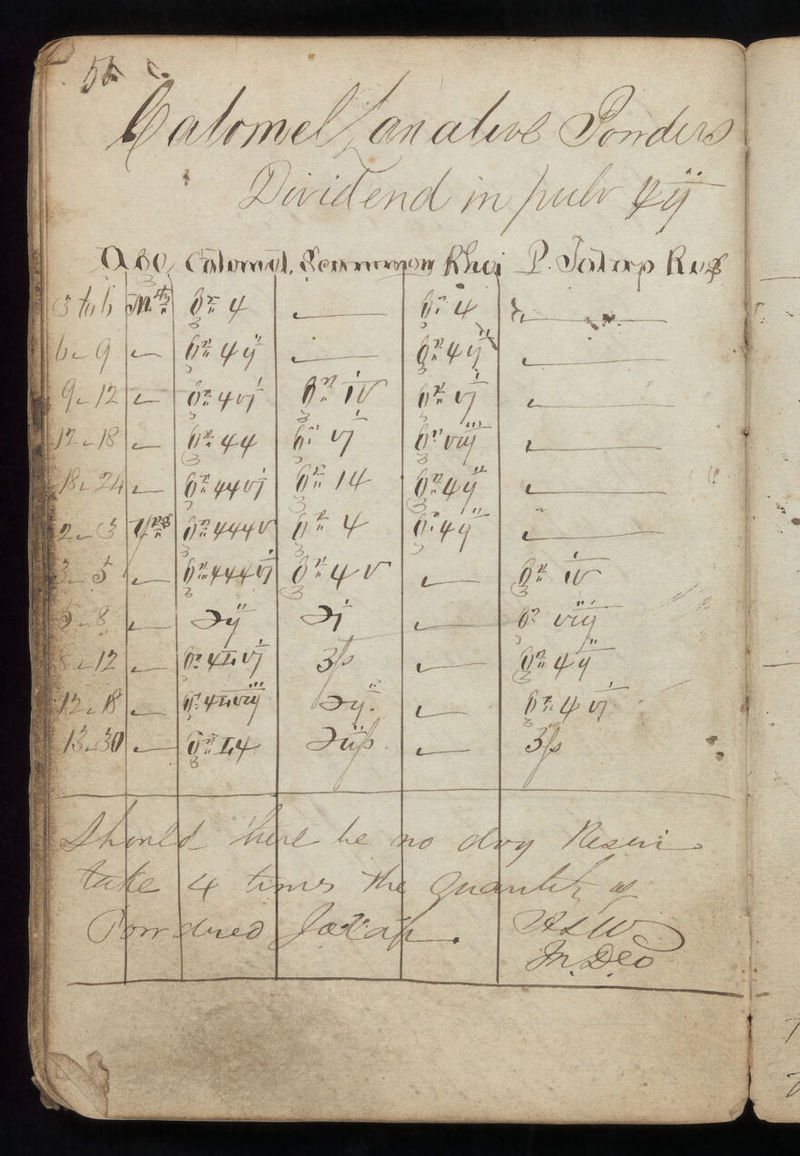 56
Calomel Laxative Powders
Dividend in pulv xij
Age Calomel. Scammon Rhei P. Jalap Res
3 to 6 Mths Grs x — Grs x —
6 - 9 — Grs xij — Grs xij —
9 - 12 — Grs xvj Grs iv Grs vj —
12 - 18 — Grs xx Grs vj Grs viij —
18 - 24 — Grs xxvj Grs ix Grs xij —
2 - 3 Yrs Grs xxxv Grs x Grs xij —
3 - 5 — Grs xxxvj Grs xv — Grs iv
5 - 8 — ℈ij ℈j — Gr viij
8 - 12 — Gr xLvj ʒß — Grs xij
12 - 18 — Gr xLviij ℈ij — Grs xvj
13 - 30 — Grs Lx ℈iiß — ʒß
Should there be no dry Resin
take 4 times the quantity of
Powdred Jalap.